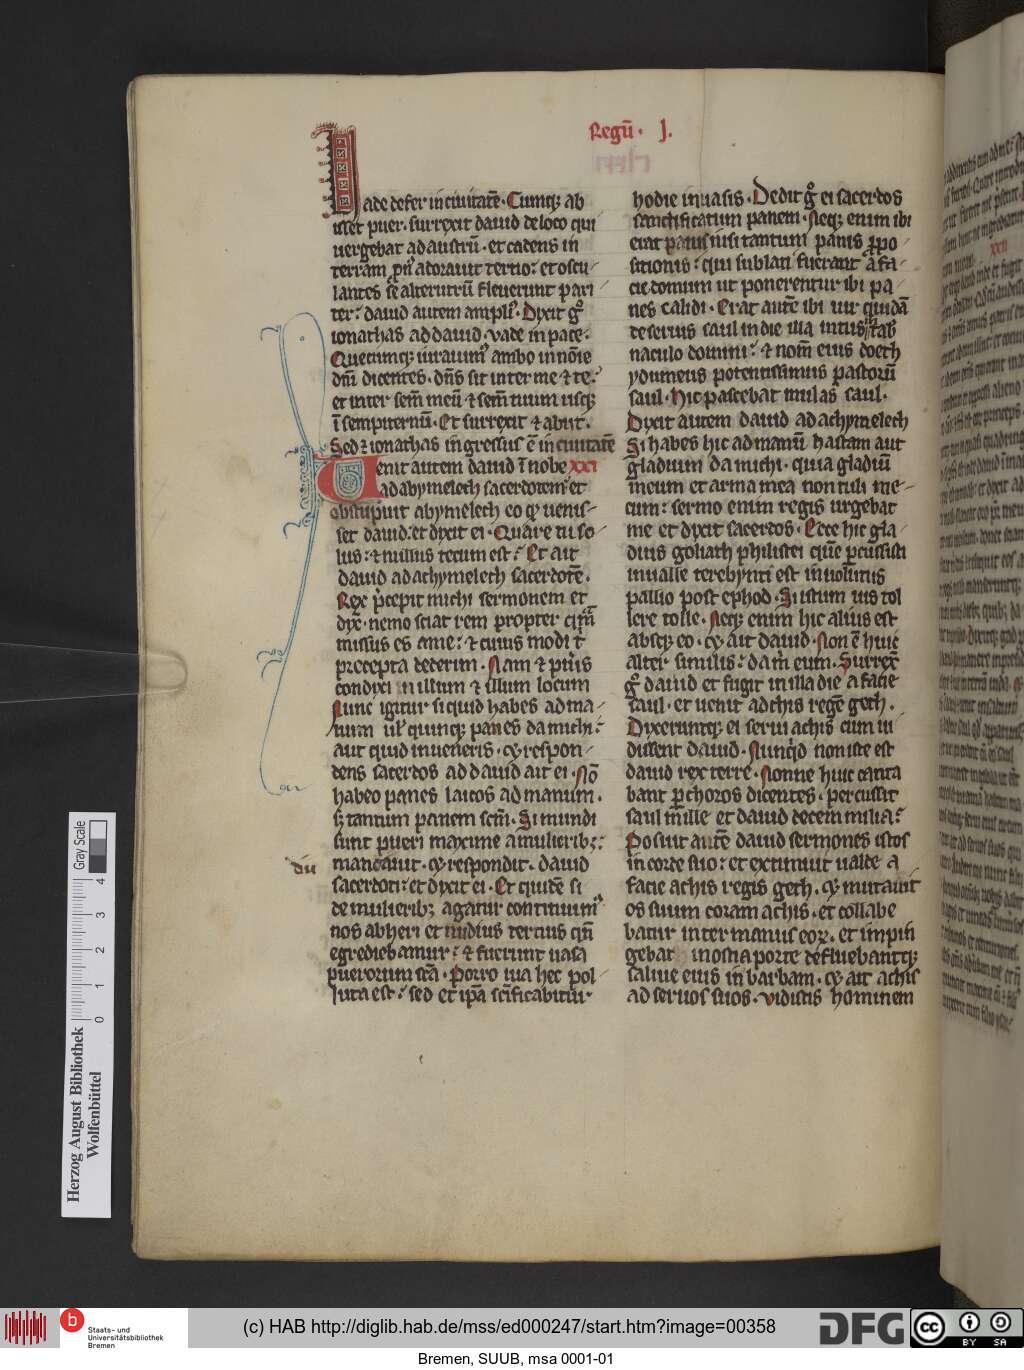 Regū · J.
Uade defer in ciuitatē · Cumqꝫ ab
isset puer · surrexit dauid de loco qui
uergebat ad austrū · et cadens in
terram pn̄ adorauit tertio : et oscu/
lantes se alterutrū fleuerunt pari/
ter : dauid autem ampl᷒ · Dixit gͦ
ionathas ad dauid · vade in pace ·
Quecumqꝫ iurauim᷒ ambo in nōīe
dn̄i dicentes · dn̄s sit inter me ⁊ te :
et inter sem̄ meū ⁊ sem̄ tuum usqꝫ
ī sempiternū · Et surrexit ⁊ abiit ·
Sed ⁊ ionathas ingressus ē in ciuitatē
Uenit autem dauid ī nobe xxi
ad abymelech sacerdotem et
obstupuit abymelech eo qͥ uenis/
set dauid : et dixit ei · Quare tu so/
lus : ⁊ nullus tecum est : Et ait
dauid ad achymelech sacerdotē ·
Rex p̄cepit michi sermonem et
dix̄ · nemo sciat rem propter qm̄
missus es a me : ⁊ cuius modi t̄
precepta dederim · Nam ⁊ pūis
condixi in illum ⁊ illum locum
Nunc igitur si quid habes ad ma/
num ul̓ quinqꝫ panes da michi :
aut quid inueneris · ⁊ respon/
dens sacerdos ad dauid ait ei · Nō
habeo panes laicos ad manum ·
sꝫ tantum panem scm̄ · Si mundi
sunt pueri maxime a mulieribꝫ :
manducāuit · ⁊ respondit · dauid
dū
sacerdoti : et dixit ei · Et quidē si
de mulieribꝫ agatur continuim᷒
nos ab heri et nudius tertius qn̄
egrediebamur : ⁊ fuerunt uasa
puerorum scā · Porro uia hec pol/
luta est : sed et ip̄a scīficabitur
hodie in uasis · Dedit gͦ ei sacerdos
sanctificatum panem · Neqꝫ enim ibi
erat panis nisi tantum panis ꝓpo/
sitionis : qui sublati fuerant a fa/
cie domini ut ponerentur ibi pa/
nes calidi · Erat autē ibi uir quidā
de seruis saul in die illa intus ī tab̄
naculo domini : ⁊ nom̄ eius doech
ydumeus potentissimus pastorū
saul · hic pascebat mulas saul ·
Dixit autem dauid ad achymelech
Si habes hic ad manū hastam aut
gladium da michi · quia gladiū
meum et arma mea non tuli me/
cum : sermo enim regis urgebat
me et dixit sacerdos · Ecce hic gla/
dius goliath philistei quē ꝑcussisti
in ualle terebynti est inuolutus
pallio post ephod · Si istum uis tol
lere tolle · Neqꝫ enim hic alius est
absqꝫ eo · ⁊ ait dauid · Non ē huic
alter similis : da m̄ eum · Surrex̄
gͦ dauid et fugit in illa die a facie
saul · et uenit ad chis regē geth ·
Dixeruntqꝫ ei serui achis cum ui/
dissent dauid · Nunqͥd non iste est
dauid rex terre · Nonne huic canta
bant ꝑ choros dicentes · percussit
saul mille et dauid decem milia :
Posuit autē dauid sermones istos
in corde suo : et extimuit ualde a
facie achis regis geth · ⁊ mutauit
os suum coram achis · et collabe
batur inter manus eoꝝ · et impin
gebat in ostia porte defluebantqꝫ
saliue eius in barbam · ⁊ ait achis
ad seruos suos · vidistis hominem
Gray Scale
0 1 2 3 4
Herzog August Bibliothek
Wolfenbüttel
b
Staats- und
Universitätsbibliothek
Bremen
(c) HAB http://diglib.hab.de/mss/ed000247/start.htm?image=00358
DFG
cc BY SA
Bremen, SUUB, msa 0001-01